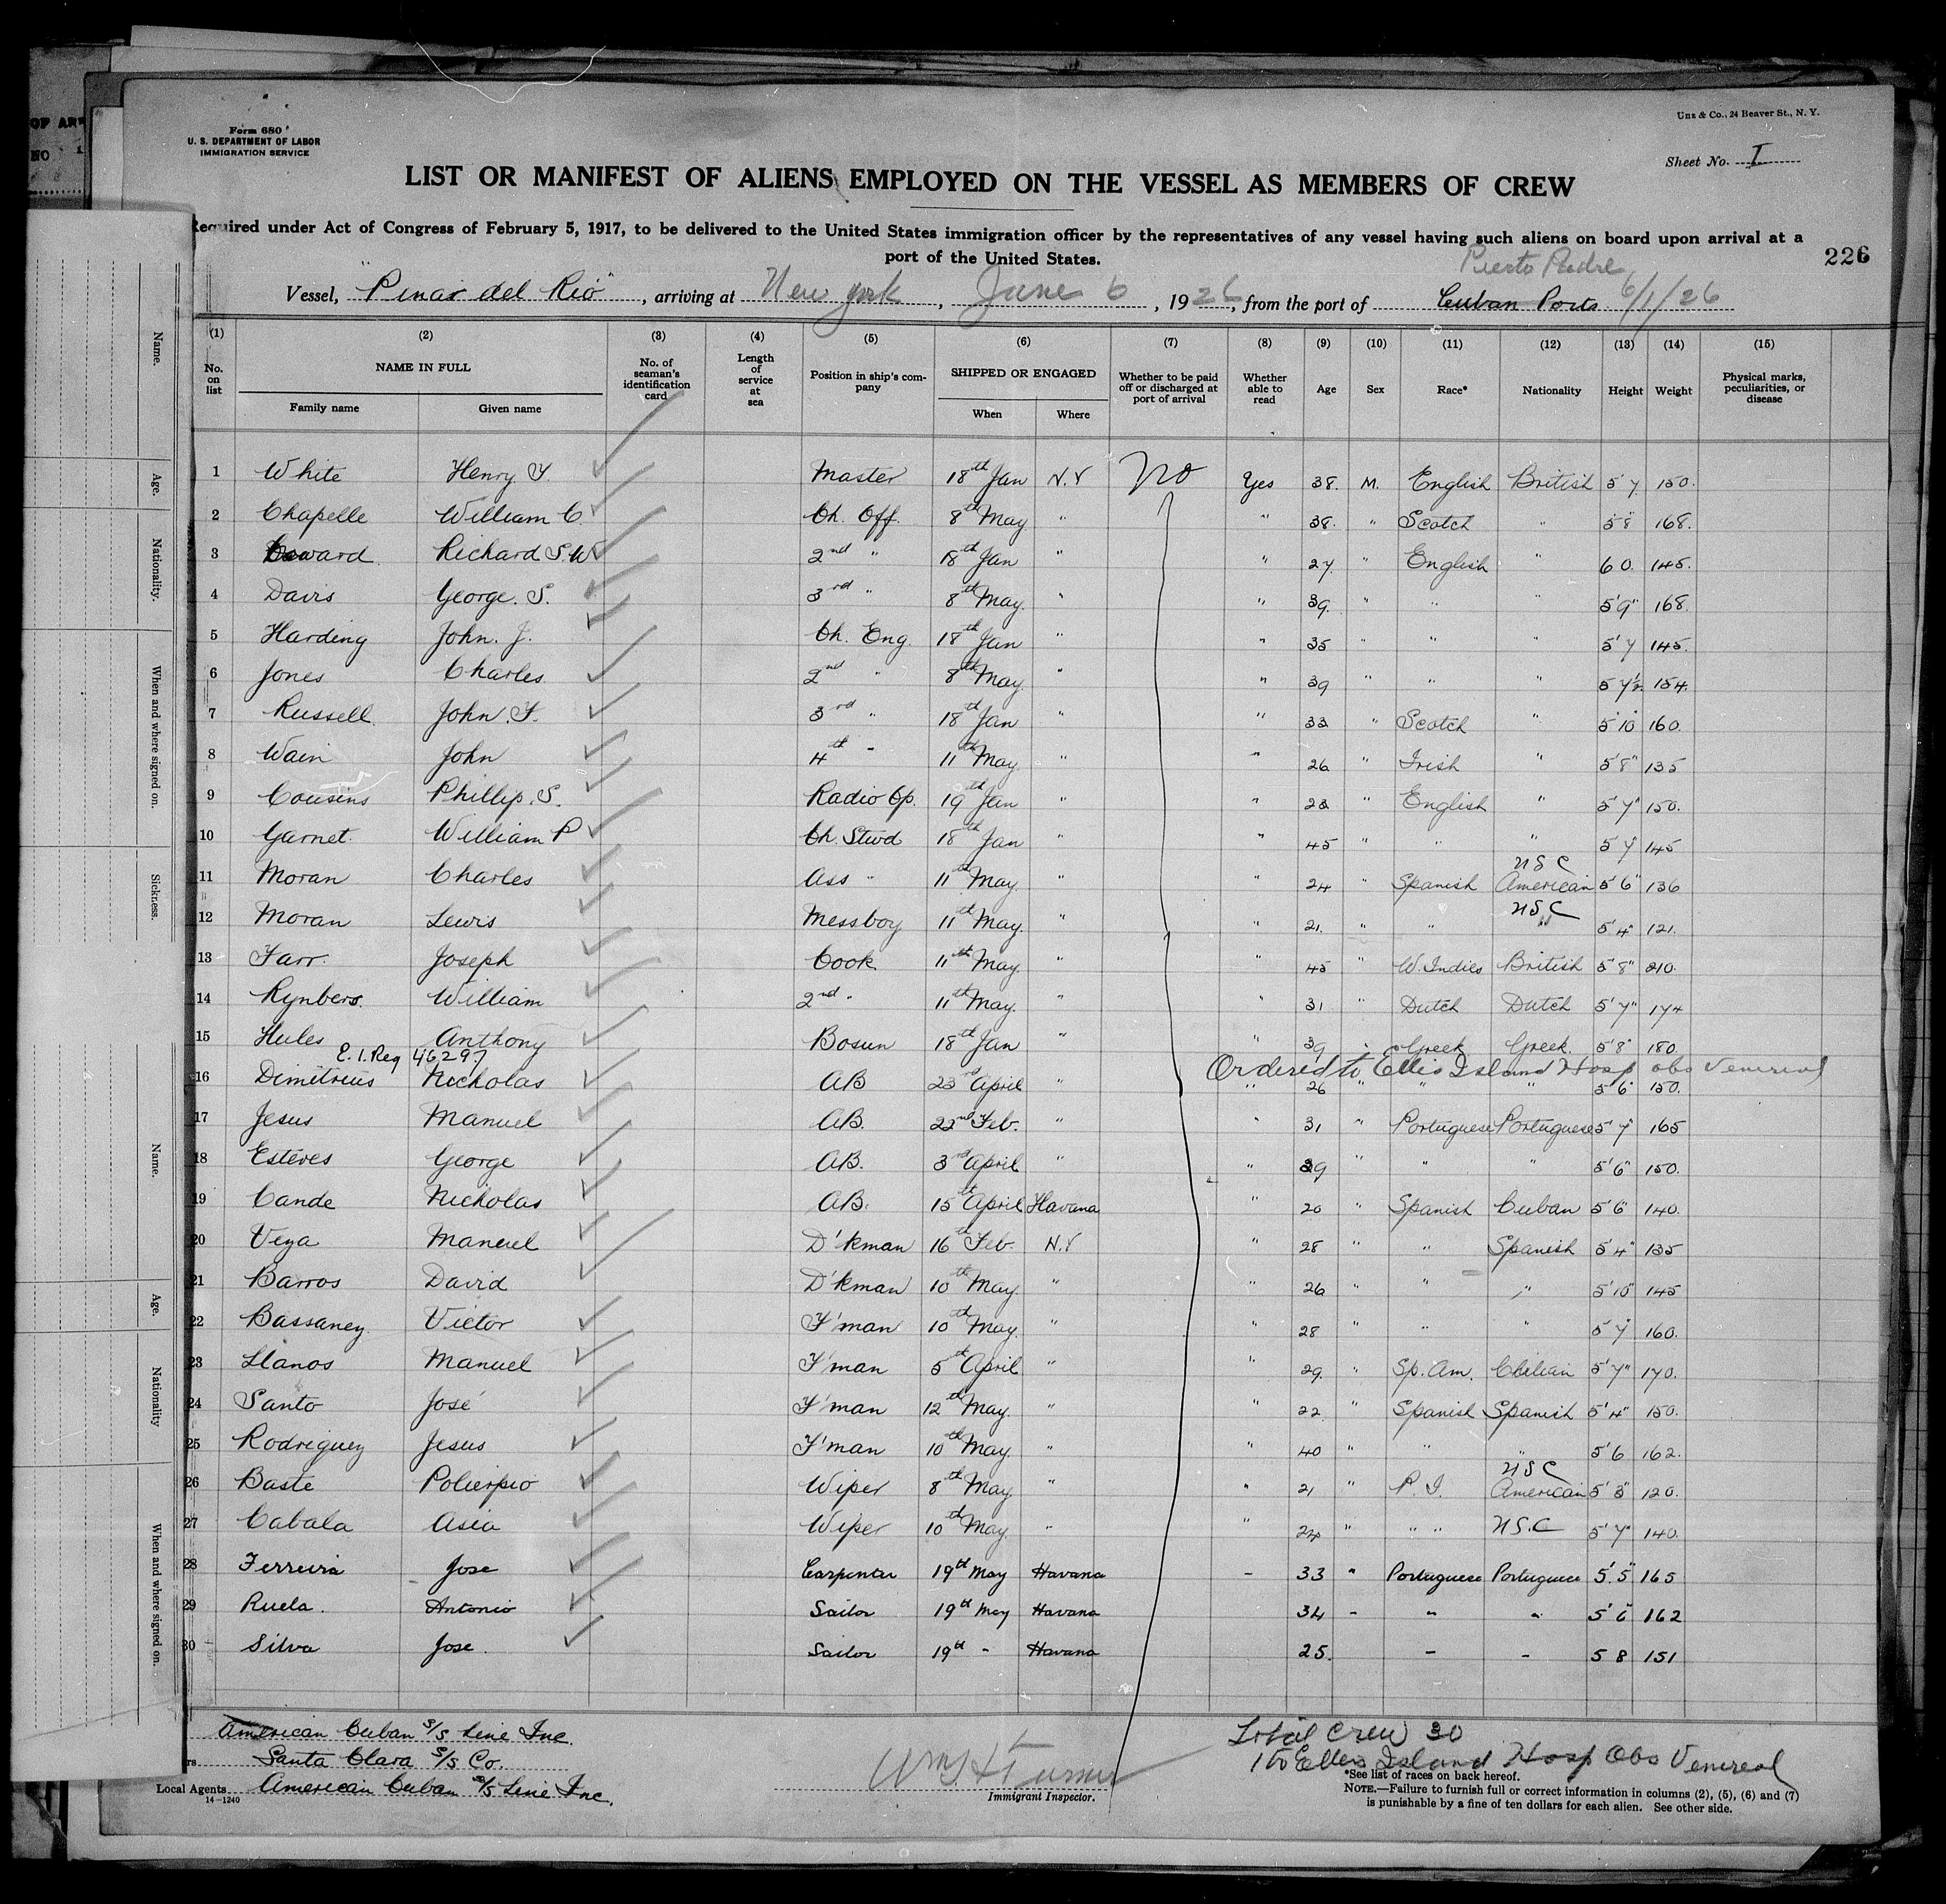 OF AR
NO 1
Form 680
U. S. DEPARTMENT OF LABOR
IMMIGRATION SERVICE
Unz & Co., 24 Beaver St., N. Y.
Sheet No. I
LIST OR MANIFEST OF ALIENS EMPLOYED ON THE VESSEL AS MEMBERS OF CREW
Required under Act of Congress of February 5, 1917, to be delivered to the United States immigration officer by the representatives of any vessel having such aliens on board upon arrival at a
port of the United States.
226
Puerto Padre
Vessel, "Pinar del Rio", arriving at New York, June 6, 1926, from the port of Cuban Ports 6/1/26
(1) (2) (3) (4) (5) (6) (7) (8) (9) (10) (11) (12) (13) (14) (15)
No. on list NAME IN FULL Family name Given name No. of seaman's identification card Length of service at sea Position in ship's company SHIPPED OR ENGAGED When Where Whether to be paid off or discharged at port of arrival Whether able to read Age Sex Race* Nationality Height Weight Physical marks, peculiarities, or disease
1 White Henry Master 18th Jan N.Y No Yes 38. M. English British 5 7 150.
2 Chapelle William C Ch. Off. 8th May " " 38. " Scotch " 5 8 168.
3 Richard S.W 2nd " 18th Jan " " 27. " English " 6 0. 145.
4 Davis George. S. 3rd " 8th May. " " 39. " " " 5'9" 168.
5 Harding John. J. Ch. Eng. 18th Jan " " 35 " " " 5'7 145.
6 Jones Charles. 2nd " 8th May. " " 39 " " " 5 7½ 154.
7 Russell. John. F. 3rd " 18th Jan " " 33 " Scotch " 5'10" 160.
8 Wain John 4th " 11th May. " " 26 " Irish " 5'8" 135
9 Cousins Phillip. S. Radio Op. 19th Jan " " 23 " English " 5'7" 150.
10 Garnet. William P Ch. Stwd 18th Jan " " 45 " " " 5 7" 145
USC
11 Moran Charles Ass " 11th May. " " 24 " Spanish American 5'6" 136
USC
12 Moran Lewis Messboy 11th May. " " 21. " " " 5'4" 121.
13 Farr. Joseph Cook 11th May. " " 45 " W. Indies British 5'8" 210.
14 Rynbers. William 2nd " 11th May. " " 31 " Dutch Dutch 5'7" 174
15 Hules Anthony Bosun 18th Jan " " 39 " Greek Greek. 5'8" 180.
E. I. Req 46297
Ordered to Ellis Island Hosp obs Venereal
16 Dimitrius Nicholas AB 23rd April " " 26 " " " 5'6" 150.
17 Jesus Manuel AB. 22nd Feb. " " 31 " Portuguese Portuguese 5'7" 165
18 Esteves George AB. 3rd April " " 39 " " " 5'6" 150.
19 Cande Nicholas AB. 15th April Havana " 20 " Spanish Cuban 5'6" 140.
20 Vega Manuel D'kman 16th Feb. N.Y " 28 " " Spanish 5'4" 135
21 Barros David D'kman 10th May " " 26 " " " 5'10" 145
22 Bassaney. Victor F'man 10th May. " " 28 " " " 5'7" 160.
23 Llanos Manuel F'man 5th April " " 29. " Sp. Am. Chilian 5'7" 170.
24 Santo José F'man 12th May. " " 22 " Spanish Spanish 5'4" 150.
25 Rodriguez Jesus F'man 10th May. " " 40 " " " 5'6 162.
USC
26 Baste Wiper 8th May " " 21 " P. I. American 5'3" 120.
27 Cabala Asia Wiper 10th May. " " 24 " " " USC 5'7" 140.
28 Ferreira Jose Carpenter 19th May Havana - 33 " Portuguese Portuguese 5'.5" 165
29 Ruela. Antonio Sailor 19th May Havana 34 - " " 5'6" 162
30 Silva Jose. Sailor 19th - Havana 25. - - 5 8 151
American Cuban S/S Line Inc.
rs Santa Clara S/S Co.
Local Agents American Cuban S/S Line Inc.
14-1240
Wm H Turner
Immigrant Inspector.
Total Crew 30
1 to Ellis Island Hosp Obs Venereal
*See list of races on back hereof.
NOTE.—Failure to furnish full or correct information in columns (2), (5), (6) and (7)
is punishable by a fine of ten dollars for each alien. See other side.
Name.
Age.
Nationality.
When and where signed on.
Sickness.
Name.
Age.
Nationality
When and where signed on.